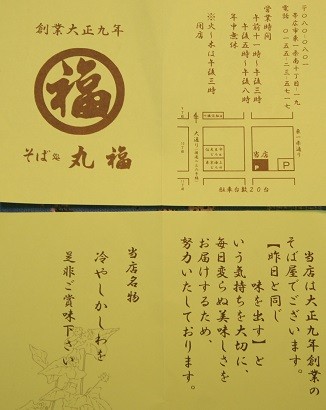 創業大正九年
福
そば処 丸福
〒080-0801
帯広市東一条南十丁目一九
電話 0155-23-5717
営業時間
午前十一時〜午後三時
午後五時〜午後八時
年中無休
※火〜木は午後三時
閉店
大通り
当店
P
東一条通り
駐車台数20台
当店は大正九年創業の
そば屋でございます。
【昨日と同じ
味を出す】と
いう気持ちを大切に、
毎日変らぬ美味しさを
お届けするため、
努力いたしております。
当店名物
冷やしかしわを
是非ご賞味下さい